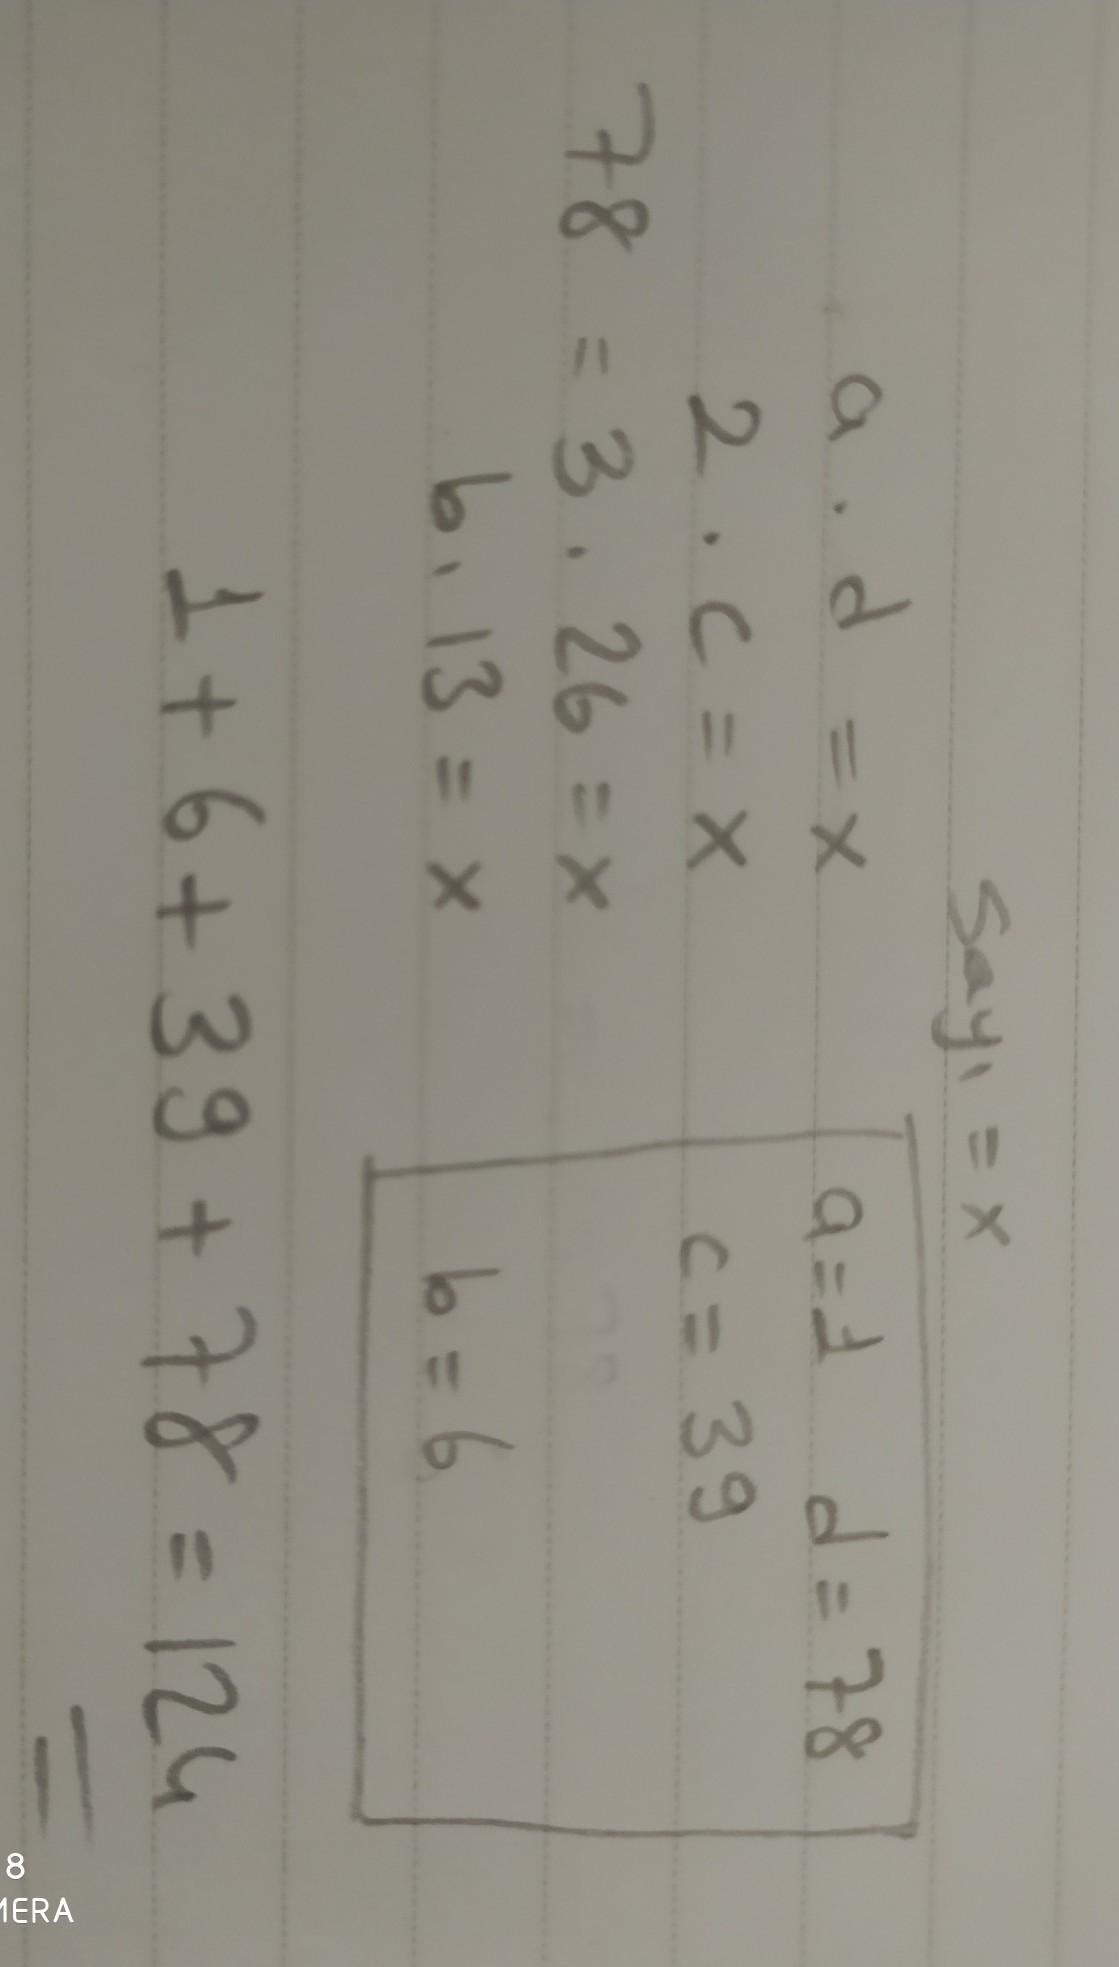 Sayı = x
a . d = x a = 1 d = 78
2 . c = x c = 39
78 = 3 . 26 = x
b . 13 = x b = 6
1 + 6 + 39 + 78 = 124
8
MERA